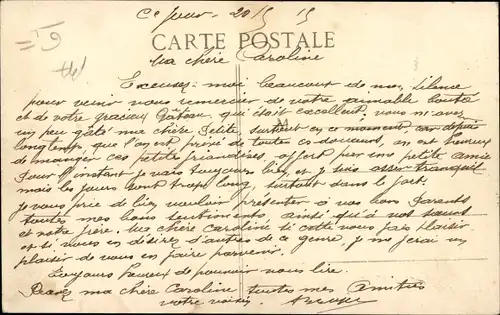 Ce jour 20/5 15
CARTE POSTALE
Ma chère Caroline
Excusez-moi beaucoup de mon silence
pour venir vous remercier de votre aimable bonté
et de votre gracieux Gâteau, qui était excellent, vous m'avez
un peu gâté ma chère Petite surtout en ce moment car depuis
longtemps, que l'on est privé de toutes ces douceurs, on est heureux
de manger ces petites friandises, offert par une petite amie
Pour l'instant je vais toujours bien, et je suis assez tranquil
mais les jours sont trop long, surtout dans le fort.
Je vous prie de bien vouloir présenter à vos bons Parents
toutes mes bons sentiments ainsi qu'à vos sœurs
et votre frère. Ma chère Caroline si cette vous fais plaisir
et si vous en désirez d'autres de ce genre, je me ferai un
plaisir de vous en faire parvenir.
Toujours heureux de pouvoir vous lire.
Recevez ma chère Caroline toutes mes Amitiés
votre voisin